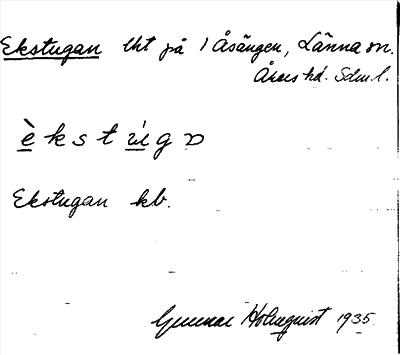 Ekstugan lht på 1 Åsängen, Länna sn.
Åkers hd. Sdm.l.
è k s t ù g ɒ
Ekstugan kb.
Gunnar Holmquist 1935